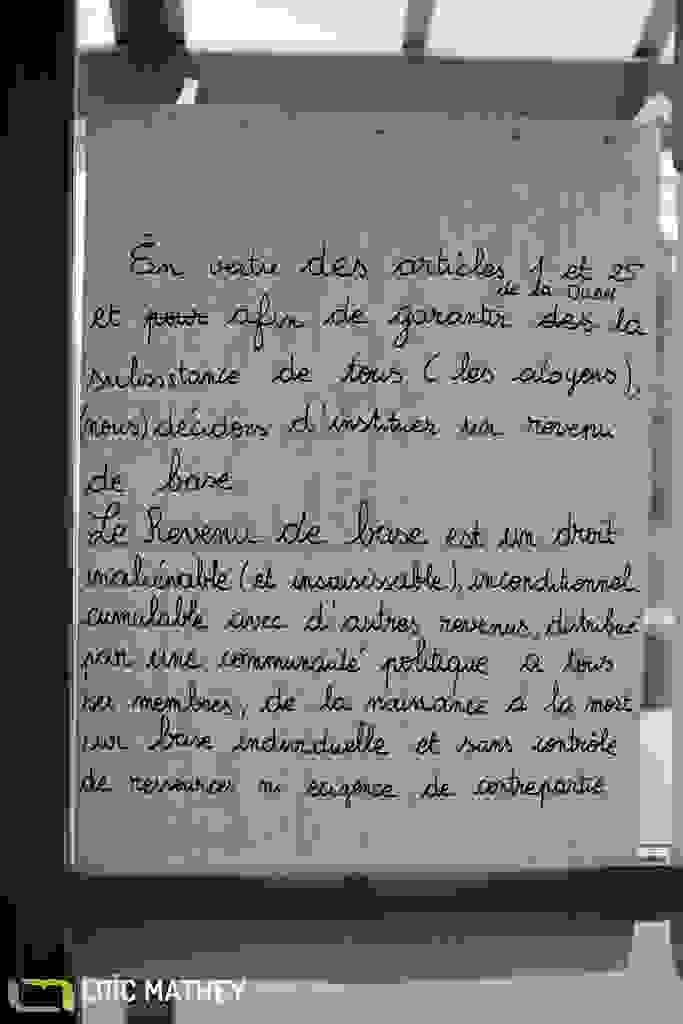 En vertu des articles 1 et 25
de la DUDH
et pour afin de garantir des la
subsistance de tous (les citoyens),
(nous) décidons d'instituer un revenu
de base
Le Revenu de base est un droit
inaliénable (et insaisissable), inconditionnel
cumulable avec d'autres revenus, distribué
par une communauté politique à tous
ses membres, de la naissance à la mort
sur base individuelle et sans contrôle
de ressources ni exigence de contrepartie
LOÏC MATHEY